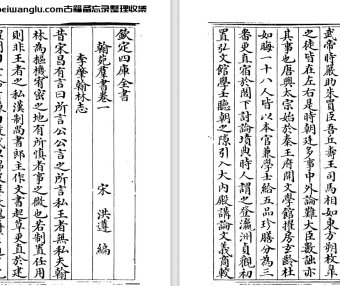 beiwanglu.com古籍备忘录整理收集
欽定四庫全書
翰苑羣書卷一
宋 洪遵 編
李肇翰林志
昔宋昌有言曰所言公公言之所言私王者無私夫翰
林為樞機宥密之地有所慎者事之微也若制置任用
則非王者之私漢制尚書郎主作文書起草更直於建
武帝時嚴助朱買臣吾丘壽王司馬相如東方朔枚臯
之徒皆在左右是時朝廷多事中外論難大臣數詘亦
其事也唐興太宗始於秦王府開文學館擢房玄齡杜
如晦一十八人皆以本官兼學士給五品珍膳分為三
番更直宿於閣下討論墳典時人謂之登瀛洲貞觀初
置弘文館學士聽朝之隙引入大內殿講論文義商較